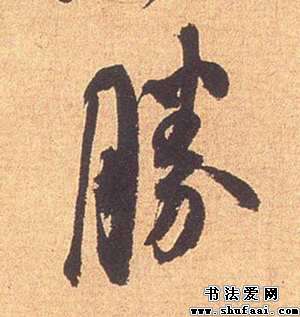 勝
书法爱网
www.shufaai.com